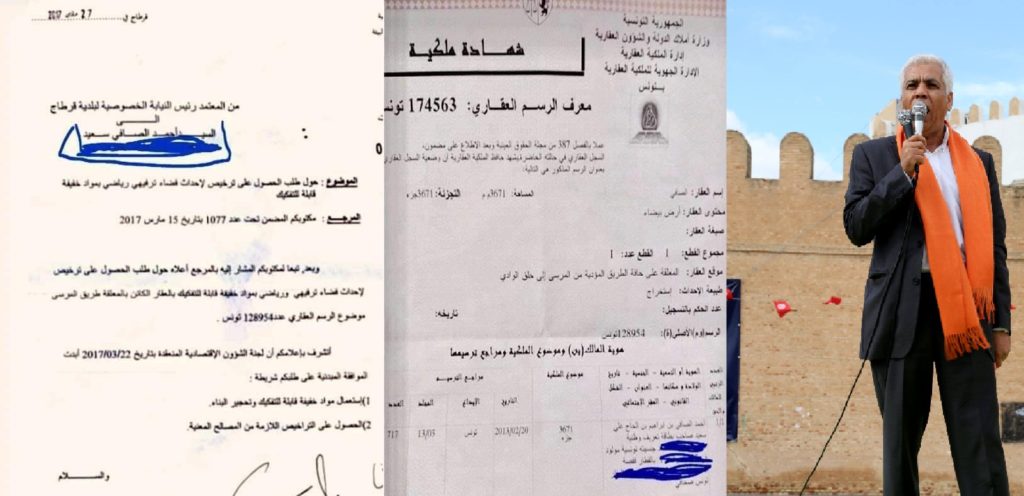 قرطاج في
27 مارس 2017
من المعتمد رئيس النيابة الخصوصية لبلدية قرطاج
الى
السيد أحمد الصافي سعيد
الموضوع : حول طلب الحصول على ترخيص لإحداث فضاء ترفيهي رياضي بمواد خفيفة
قابلة للتفكيك
المرجع : مكتوبكم المضمن تحت عدد 1077 بتاريخ 15 مارس 2017
وبعد، تبعا لمكتوبكم المشار إليه بالمرجع أعلاه حول طلب الحصول على ترخيص
لإحداث فضاء ترفيهي ورياضي بمواد خفيفة قابلة للتفكيك بالعقار الكائن بالمعلقة طريق المرسى
موضوع الرسم العقاري عدد 128954 تونس .
أتشرف بإعلامكم أن لجنة الشؤون الإقتصادية المنعقدة بتاريخ 2017/03/22 أبدت
الموافقة المبدئية على طلبكم شريطة :
1)إستعمال مواد خفيفة قابلة للتفكيك وتحجير البناء.
2)الحصول على التراخيص اللازمة من المصالح المعنية.
والسلام
الجمهورية التونسية
وزارة أملاك الدولة والشؤون العقارية
إدارة الملكية العقارية
الإدارة الجهوية للملكية العقارية
بتونس
شهادة ملكية
معرف الرسم العقاري: 174563 تونس
عملا بالفصل 387 من مجلة الحقوق العينية وبعد الإطلاع على مضمون،
السجل العقاري في حالته الحاضرة يشهد حافظ الملكية العقارية أن وضعية السجل العقاري
بعنوان الرسم المذكور هي التالية:
إسم العقار: الصافي
المساحة: 3671م
التجزئة: 3671جزء
محتوى العقار: أرض بيضاء
صبغة العقار:
مجموع القطع: 1 القطع عدد: 1
موقع العقار: المعلقة على حافة الطريق المؤدية من المرسى إلى حلق الوادي
طبيعة الإحداث: إستخراج
عدد الحكم بالتسجيل: تاريخه:
الرسم(وم)الأصلي(ة): 128954تونس
هوية المالك(ين) وموضوع الملكية ومراجع ترسيمها
موضوع الملكية
مراجع الترسيم
التاريخ
الإيداع
المجلد
العدد
أحمد الصافي بن ابراهيم بن الحاج علي
سعيد صاحب بطاقة تعريف وطنية
جنسيته تونسية مولود
بالقطار قفصة
تونس صحافي
3671
جزء
2013/02/20
تونس
13/03
717